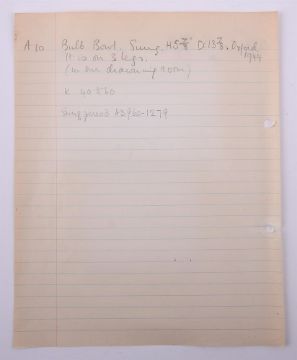 A 10 Bulb Bowl. Sung. 45 7/8" D: 13 7/8. Oxford 1944
It is on 3 legs.
(in her drawing room)
K 40 560
Sung period AD 960-1279